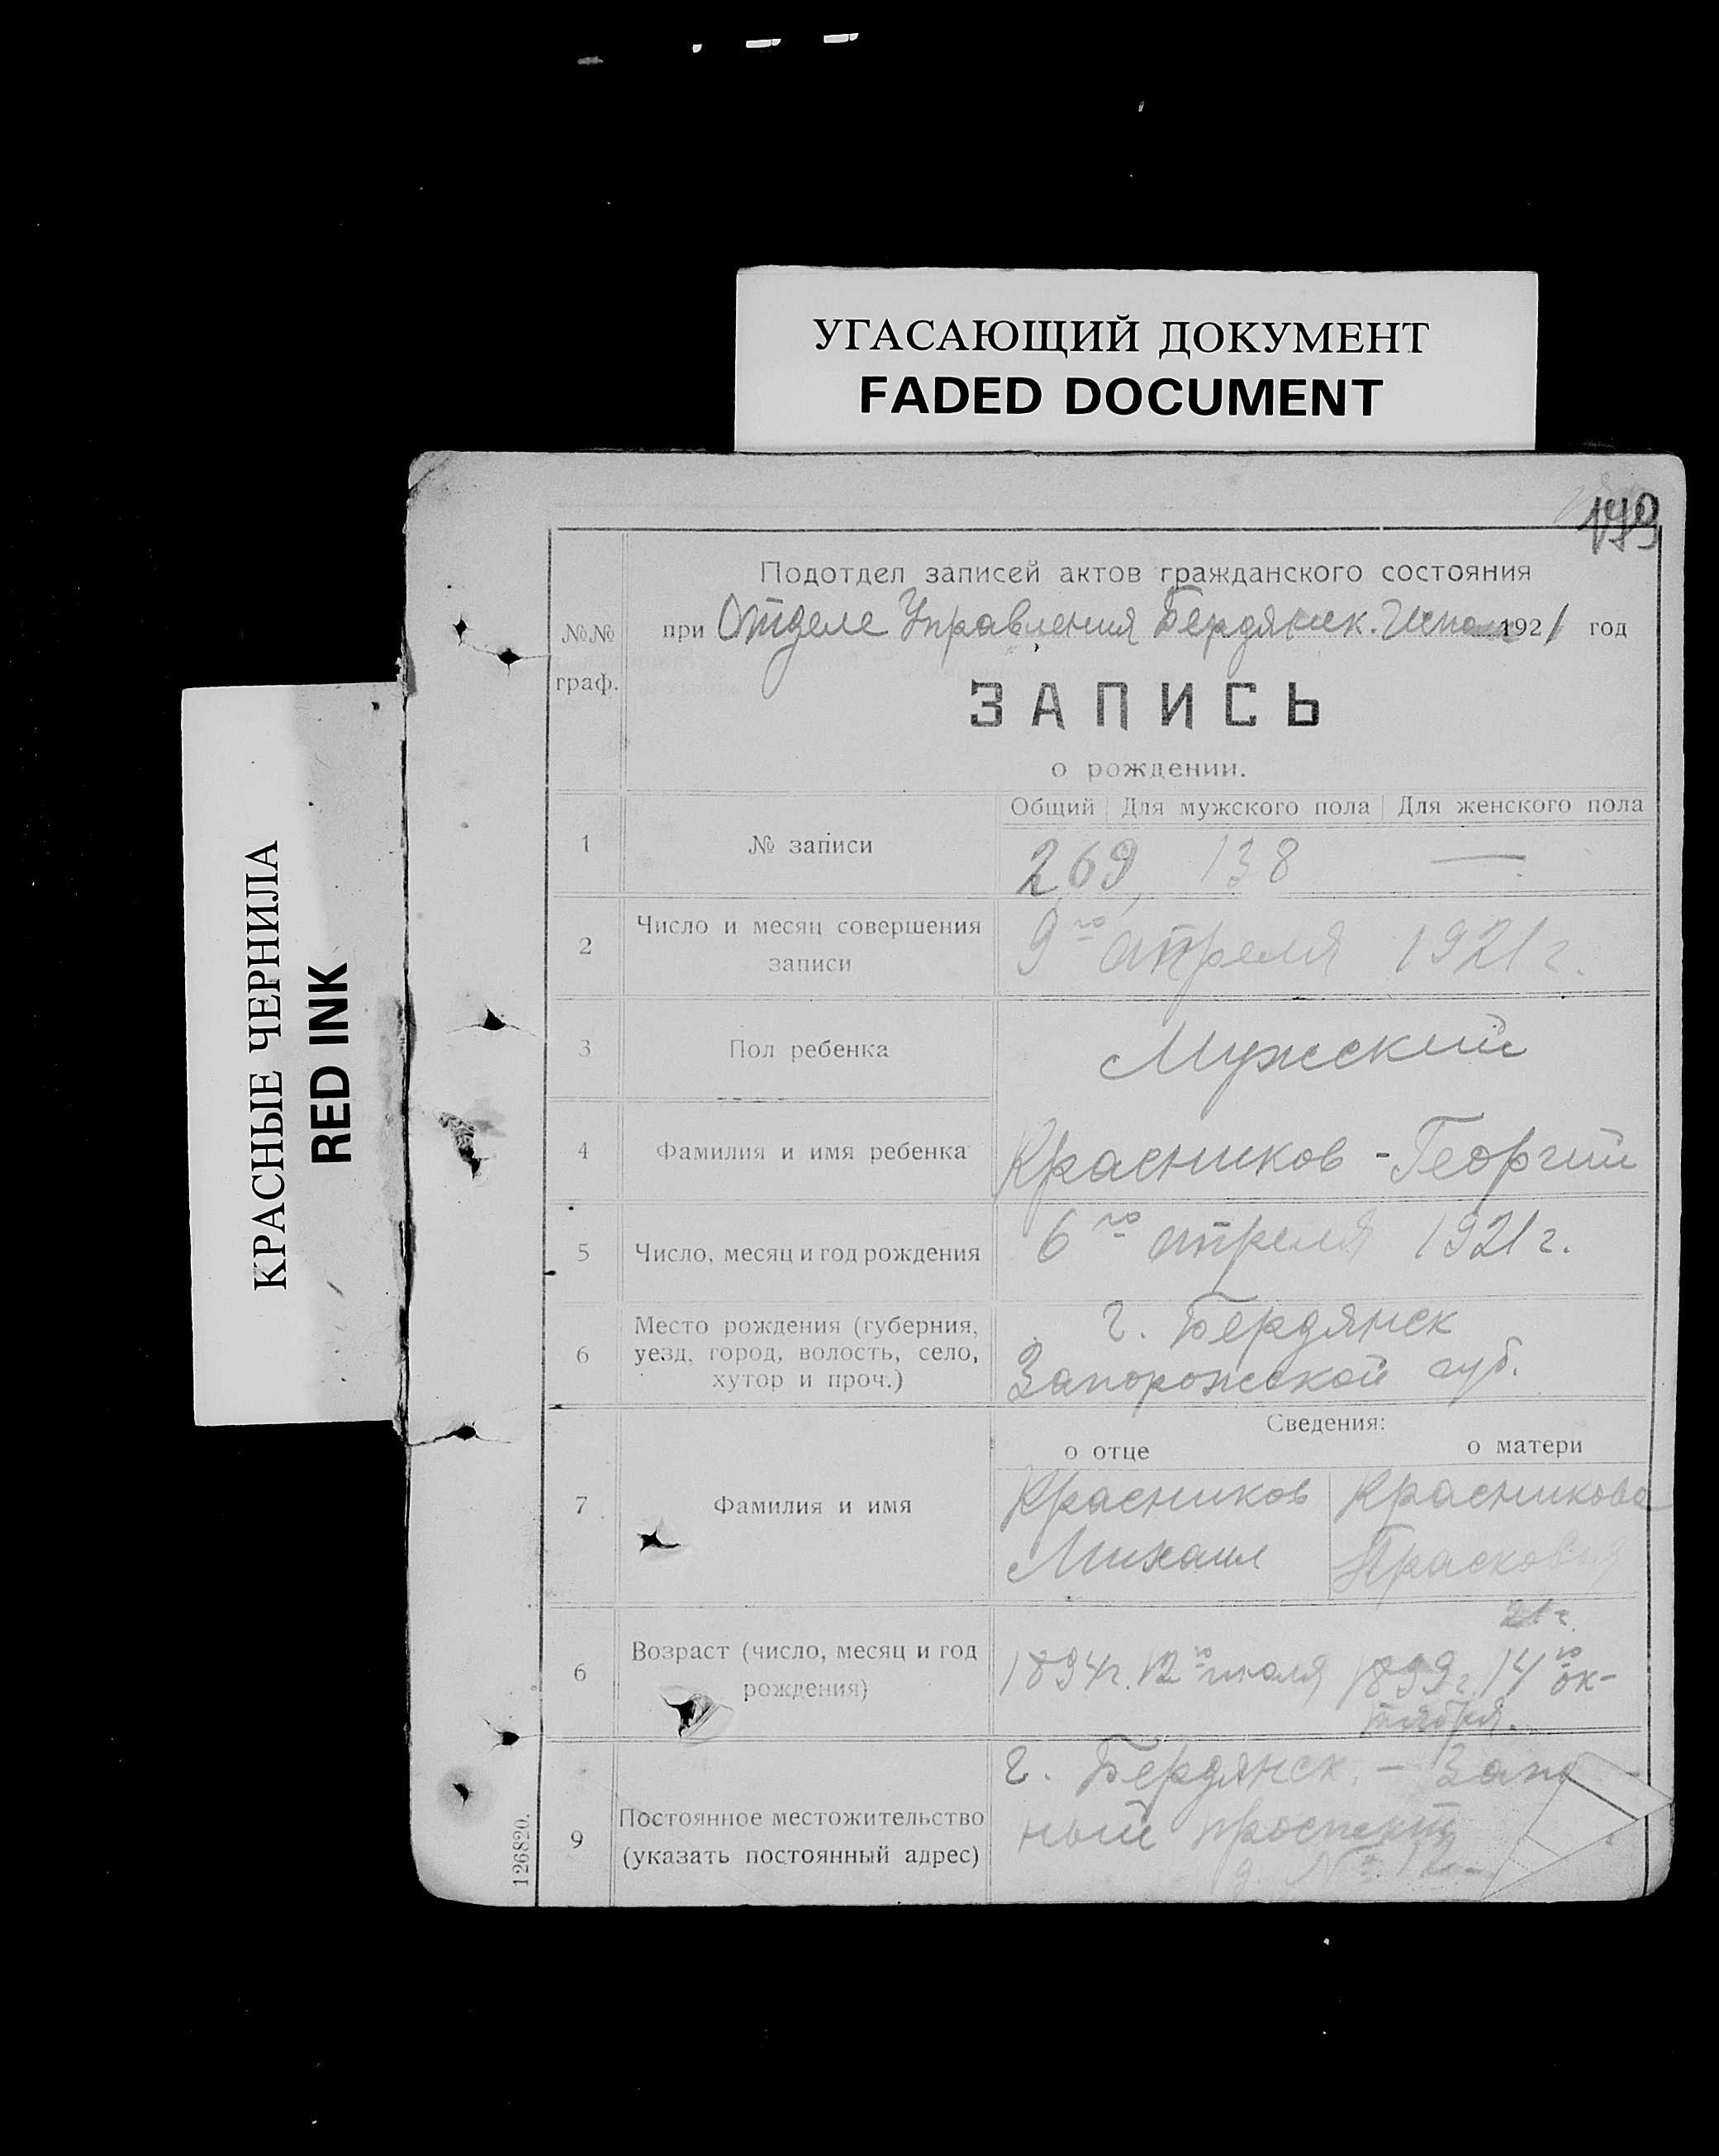 УГАСАЮЩИЙ ДОКУМЕНТ
FADED DOCUMENT
КРАСНЫЕ ЧЕРНИЛА
RED INK
Подотдел записей актов гражданского состояния
№№ граф.
при Отделе Управления Бердянск. Испол 1921 год
ЗАПИСЬ
о рождении.
Общий Для мужского пола Для женского пола
1 № записи 269 138 —
2 Число и месяц совершения записи
9го апреля 1921 г.
3 Пол ребенка Мужский
4 Фамилия и имя ребенка Красников - Георгий
5 Число, месяц и год рождения 6го апреля 1921 г.
6 Место рождения (губерния, уезд, город, волость, село, хутор и проч.)
г. Бердянск
Запорожской губ.
Сведения:
о отце о матери
7 Фамилия и имя
Красников Красникова
Михаил Прасковья
21 г.
6 Возраст (число, месяц и год рождения)
1894 г. 12го июля 1899 г. 14го ок-
тября.
9 Постоянное местожительство (указать постоянный адрес)
г. Бердянск. -
ный проспект
д. № 12 -
126820.